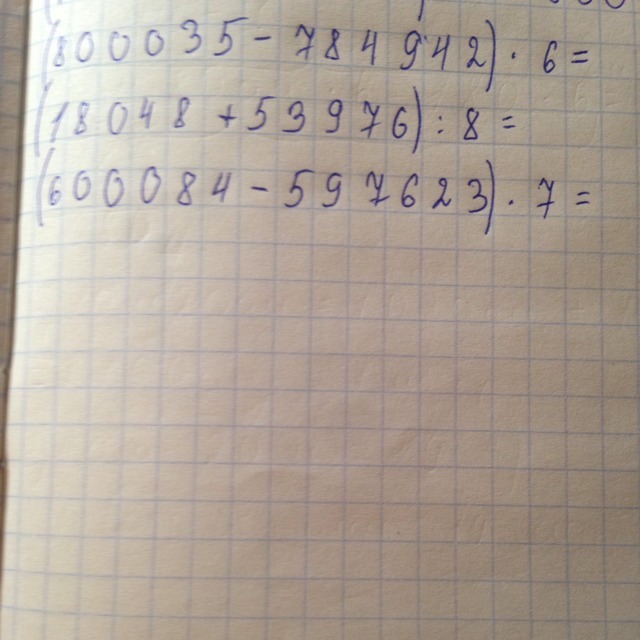 (800035 - 784942) · 6 =
(18048 + 53976) : 8 =
(600084 - 597623) · 7 =